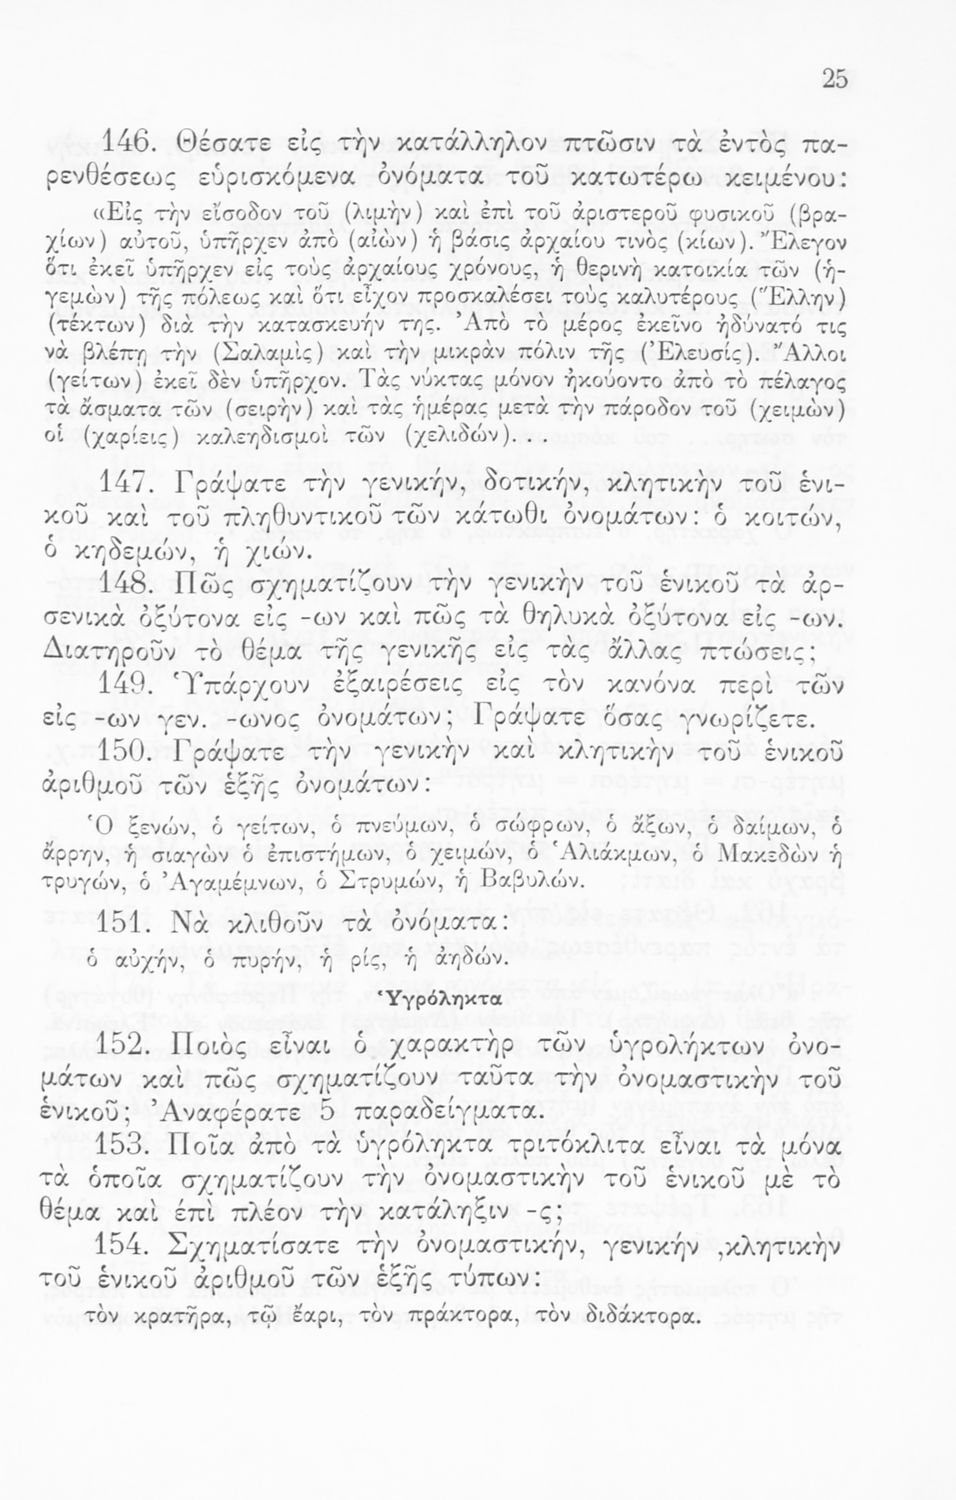 25
146. Θέσατε εἰς τὴν κατάλληλον πτῶσιν τὰ ἐντὸς πα-
ρενθέσεως εὑρισκόμενα ὀνόματα τοῦ κατωτέρω κειμένου:
«Εἰς τὴν εἴσοδον τοῦ (λιμὴν) καὶ ἐπὶ τοῦ ἀριστεροῦ φυσικοῦ (βρα-
χίων) αὐτοῦ, ὑπῆρχεν ἀπὸ (αἰὼν) ἡ βάσις ἀρχαίου τινὸς (κίων). Ἔλεγον
ὅτι ἐκεῖ ὑπῆρχεν εἰς τοὺς ἀρχαίους χρόνους, ἡ θερινὴ κατοικία τῶν (ἡ-
γεμὼν) τῆς πόλεως καὶ ὅτι εἶχον προσκαλέσει τοὺς καλυτέρους (Ἕλλην)
(τέκτων) διὰ τὴν κατασκευήν της. Ἀπὸ τὸ μέρος ἐκεῖνο ἠδύνατό τις
νὰ βλέπῃ τὴν (Σαλαμὶς) καὶ τὴν μικρὰν πόλιν τῆς (Ἐλευσίς). Ἄλλοι
(γείτων) ἐκεῖ δὲν ὑπῆρχον. Τὰς νύκτας μόνον ἠκούοντο ἀπὸ τὸ πέλαγος
τὰ ἄσματα τῶν (σειρὴν) καὶ τὰς ἡμέρας μετὰ τὴν πάροδον τοῦ (χειμὼν)
οἱ (χαρίεις) καλεηδισμοὶ τῶν (χελιδών). . .
147. Γράψατε τὴν γενικήν, δοτικήν, κλητικὴν τοῦ ἑνι-
κοῦ καὶ τοῦ πληθυντικοῦ τῶν κάτωθι ὀνομάτων: ὁ κοιτών,
ὁ κηδεμών, ἡ χιών.
148. Πῶς σχηματίζουν τὴν γενικὴν τοῦ ἑνικοῦ τὰ ἀρ-
σενικὰ ὀξύτονα εἰς -ων καὶ πῶς τὰ θηλυκὰ ὀξύτονα εἰς -ων.
Διατηροῦν τὸ θέμα τῆς γενικῆς εἰς τὰς ἄλλας πτώσεις;
149. Ὑπάρχουν ἐξαιρέσεις εἰς τὸν κανόνα περὶ τῶν
εἰς -ων γεν. -ωνος ὀνομάτων; Γράψατε ὅσας γνωρίζετε.
150. Γράψατε τὴν γενικὴν καὶ κλητικὴν τοῦ ἑνικοῦ
ἀριθμοῦ τῶν ἑξῆς ὀνομάτων:
Ὁ ξενών, ὁ γείτων, ὁ πνεύμων, ὁ σώφρων, ὁ ἄξων, ὁ δαίμων, ὁ
ἄρρην, ἡ σιαγὼν ὁ ἐπιστήμων, ὁ χειμών, ὁ Ἁλιάκμων, ὁ Μακεδὼν ἡ
τρυγών, ὁ Ἀγαμέμνων, ὁ Στρυμών, ἡ Βαβυλών.
151. Νὰ κλιθοῦν τὰ ὀνόματα:
ὁ αὐχήν, ὁ πυρήν, ἡ ρίς, ἡ ἀηδών.
Ὑγρόληκτα
152. Ποιὸς εἶναι ὁ χαρακτὴρ τῶν ὑγρολήκτων ὀνο-
μάτων καὶ πῶς σχηματίζουν ταῦτα τὴν ὀνομαστικὴν τοῦ
ἑνικοῦ; Ἀναφέρατε 5 παραδείγματα.
153. Ποῖα ἀπὸ τὰ ὑγρόληκτα τριτόκλιτα εἶναι τὰ μόνα
τὰ ὁποῖα σχηματίζουν τὴν ὀνομαστικὴν τοῦ ἑνικοῦ μὲ τὸ
θέμα καὶ ἐπὶ πλέον τὴν κατάληξιν -ς;
154. Σχηματίσατε τὴν ὀνομαστικήν, γενικήν ,κλητικὴν
τοῦ ἑνικοῦ ἀριθμοῦ τῶν ἑξῆς τύπων:
τὸν κρατῆρα, τῷ ἔαρι, τὸν πράκτορα, τὸν διδάκτορα.